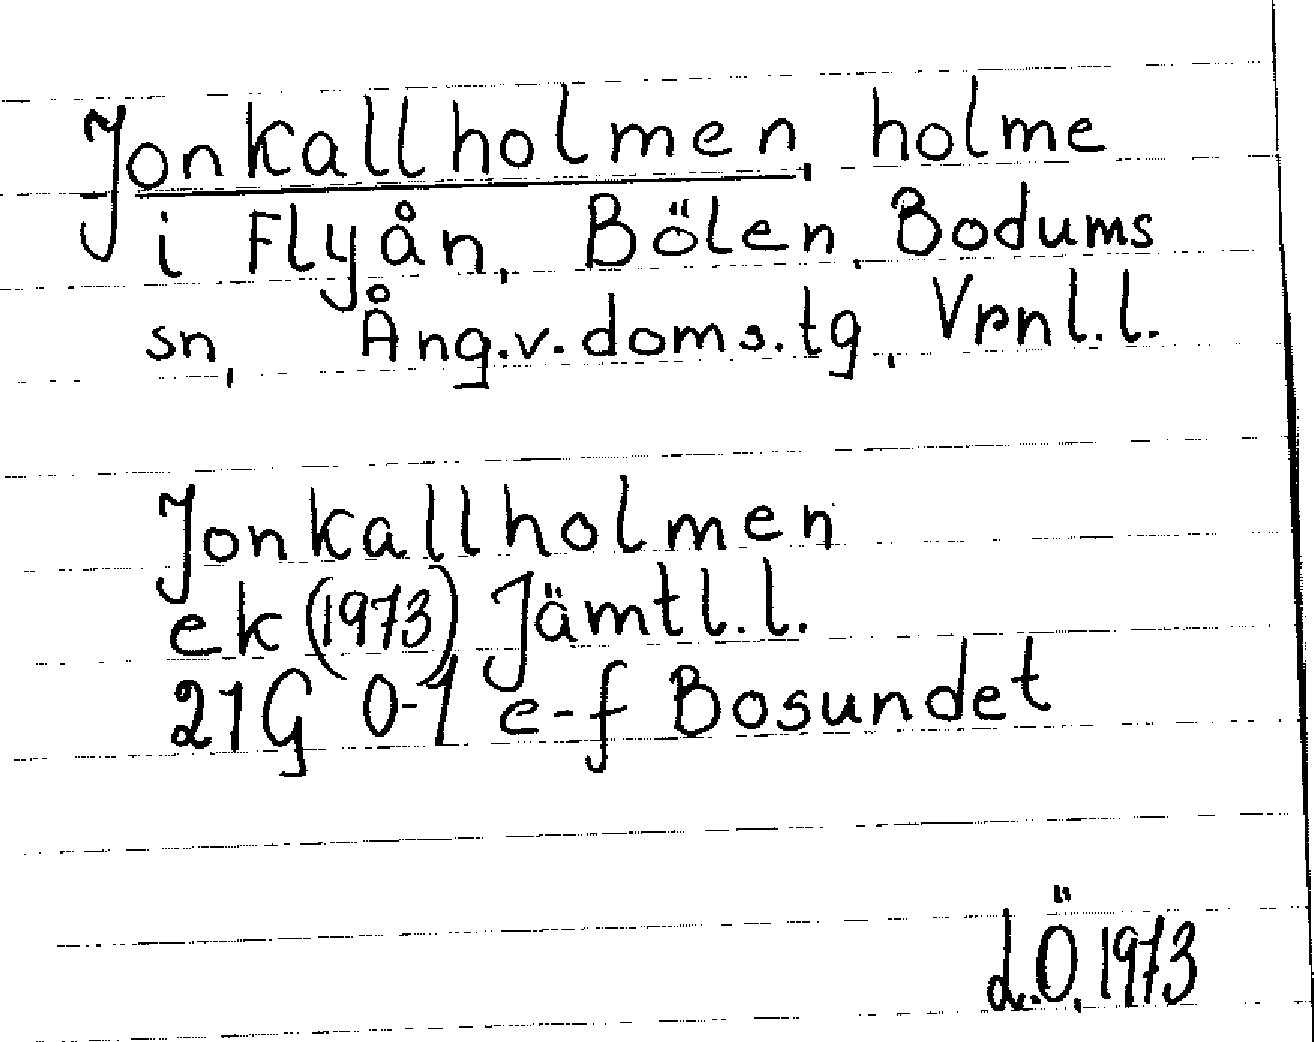 Jonkallholmen, holme
i Flyån, Bölen, Bodums
sn, Ång.v.doms.tg, Vrnl.l.
Jonkallholmen
ek (1973) Jämtl.l.
21G 0-1 e-f Bosundet
L.Ö. 1973